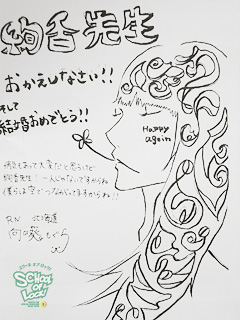 絢香先生
おかえしなさい!!
そして
結婚おめでとう!!
Happy again
病気もあって大変だと思うけど
絢香先生!一人じゃないですからね
僕らは空でつながってますからね!!
RN 北海道
SCHOOL OF LOCK!